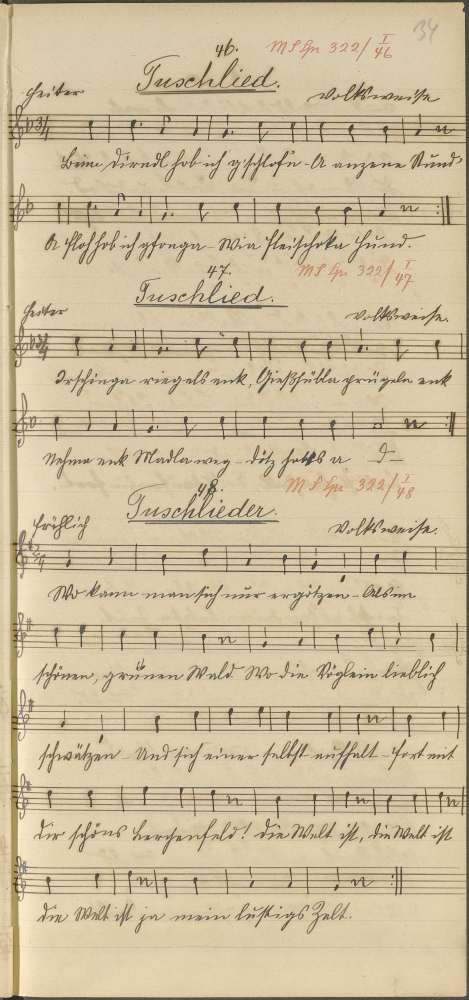 34
46. MS Gr 322/I/46
Tuschlied.
Heiter Volksweise
Beim Dirndl hob ich g'schlofn - A anzene Stund'
A Floh hob ich gfonga - Wia Fleischoka Hund.
47. MS Gr 322/I/47
Tuschlied.
Heiter Volksweise.
riegels enk, Gießhübla prügeln enk
Nehma enk Madla weg - dötz hotts a
48. MS Gr 322/I/48
Tuschlieder.
Fröhlich Volksweise.
Wo kann man sich nur ergötzen - Als im
schönen, grünen Wald. Wo die Vöglein lieblich
schwätzen - Und sich einer selbst aufhalt - Fort mit
dir schöns Lerchenfeld! die Welt ist, die Welt ist
die Welt ist ja mein lustigs Zelt.